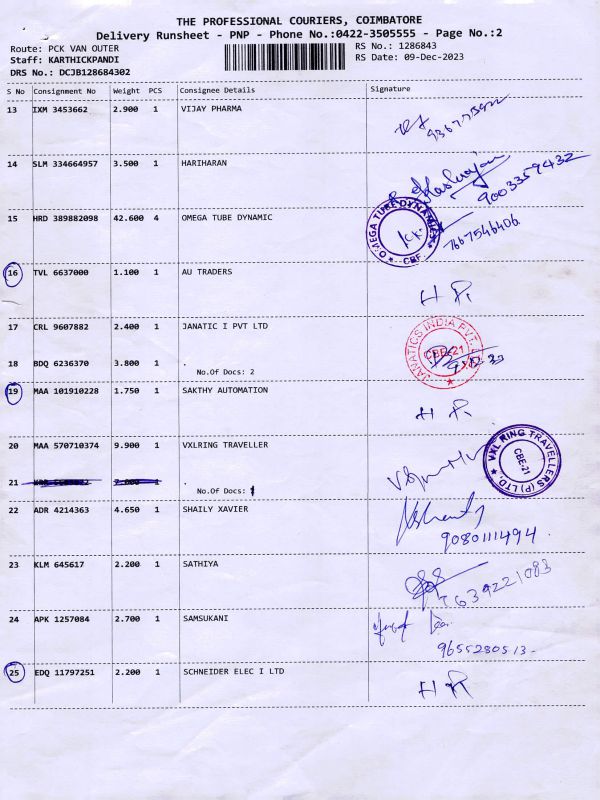 THE PROFESSIONAL COURIERS, COIMBATORE
Delivery Runsheet - PNP - Phone No.:0422-3505555 - Page No.:2
Route: PCK VAN OUTER
RS No.: 1286843
Staff: KARTHICKPANDI
RS Date: 09-Dec-2023
DRS No.: DCJB128684302
S No Consignment No Weight PCS Consignee Details Signature
13 IXM 3453662 2.900 1 VIJAY PHARMA
9367713912
14 SLM 334664957 3.500 1 HARIHARAN
9003359432
15 HRD 389882098 42.600 4 OMEGA TUBE DYNAMIC
OMEGA TUBE DYNAMICS
CBE
7667546406
16 TVL 6637000 1.100 1 AU TRADERS
17 CRL 9607882 2.400 1 JANATIC I PVT LTD
JANATICS INDIA PVT. LTD.
CBE-21
18 BDQ 6236370 3.800 1 .
No.Of Docs: 2
19 MAA 101910228 1.750 1 SAKTHY AUTOMATION
20 MAA 570710374 9.900 1 VXLRING TRAVELLER
VXL RING TRAVELLERS (P) LTD.
CBE-21
21 .
No.Of Docs:
22 ADR 4214363 4.650 1 SHAILY XAVIER
9080111494
23 KLM 645617 2.200 1 SATHIYA
7639221083
24 APK 1257084 2.700 1 SAMSUKANI
9655280513-
25 EDQ 11797251 2.200 1 SCHNEIDER ELEC I LTD